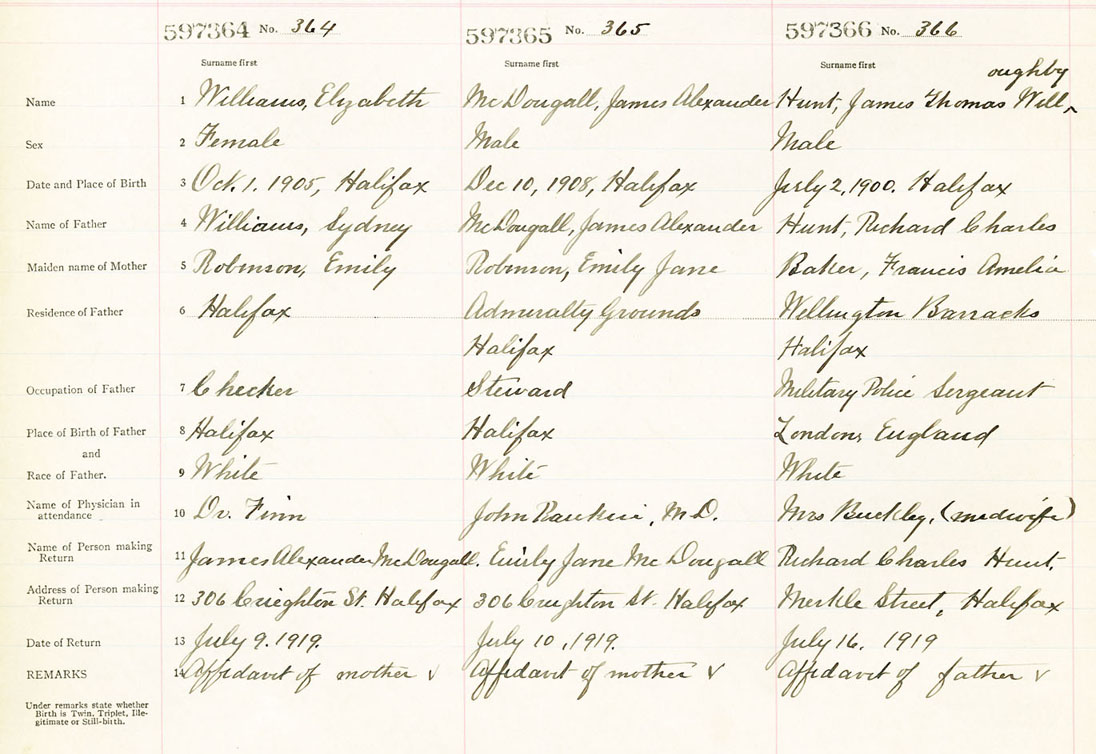 597364 No. 364 597365 No. 365 597366 No. 366
Surname first Surname first Surname first
oughby
Name 1 Williams, Elizabeth McDougall, James Alexander Hunt, James Thomas Will^
Sex 2 Female Male Male
Date and Place of Birth 3 Oct. 1. 1905, Halifax Dec 10, 1908, Halifax July 2, 1900. Halifax
Name of Father 4 Williams, Sydney McDougall, James Alexander Hunt, Richard Charles
Maiden name of Mother 5 Robinson, Emily Robinson, Emily Jane Baker, Francis Amelia
Residence of Father 6 Halifax Admiralty Grounds Wellington Barracks
Halifax Halifax
Occupation of Father 7 Checker Steward Military Police Sergeant
Place of Birth of Father 8 Halifax Halifax London, England
and
Race of Father. 9 White White White
Name of Physician in
attendance 10 Dr. Finn John Rankin, M.D. Mrs Buckley, (midwife)
Name of Person making
Return 11 James Alexander McDougall. Emily Jane McDougall Richard Charles Hunt.
Address of Person making
Return 12 306 Creighton St. Halifax 306 Creighton St. Halifax Merkle Street, Halifax
Date of Return 13 July 9. 1919. July 10, 1919. July 16. 1919
REMARKS 14 Affidavit of mother √ Affidavit of mother √ Affidavit of father √
Under remarks state whether
Birth is Twin, Triplet, Ille-
gitimate or Still-birth.